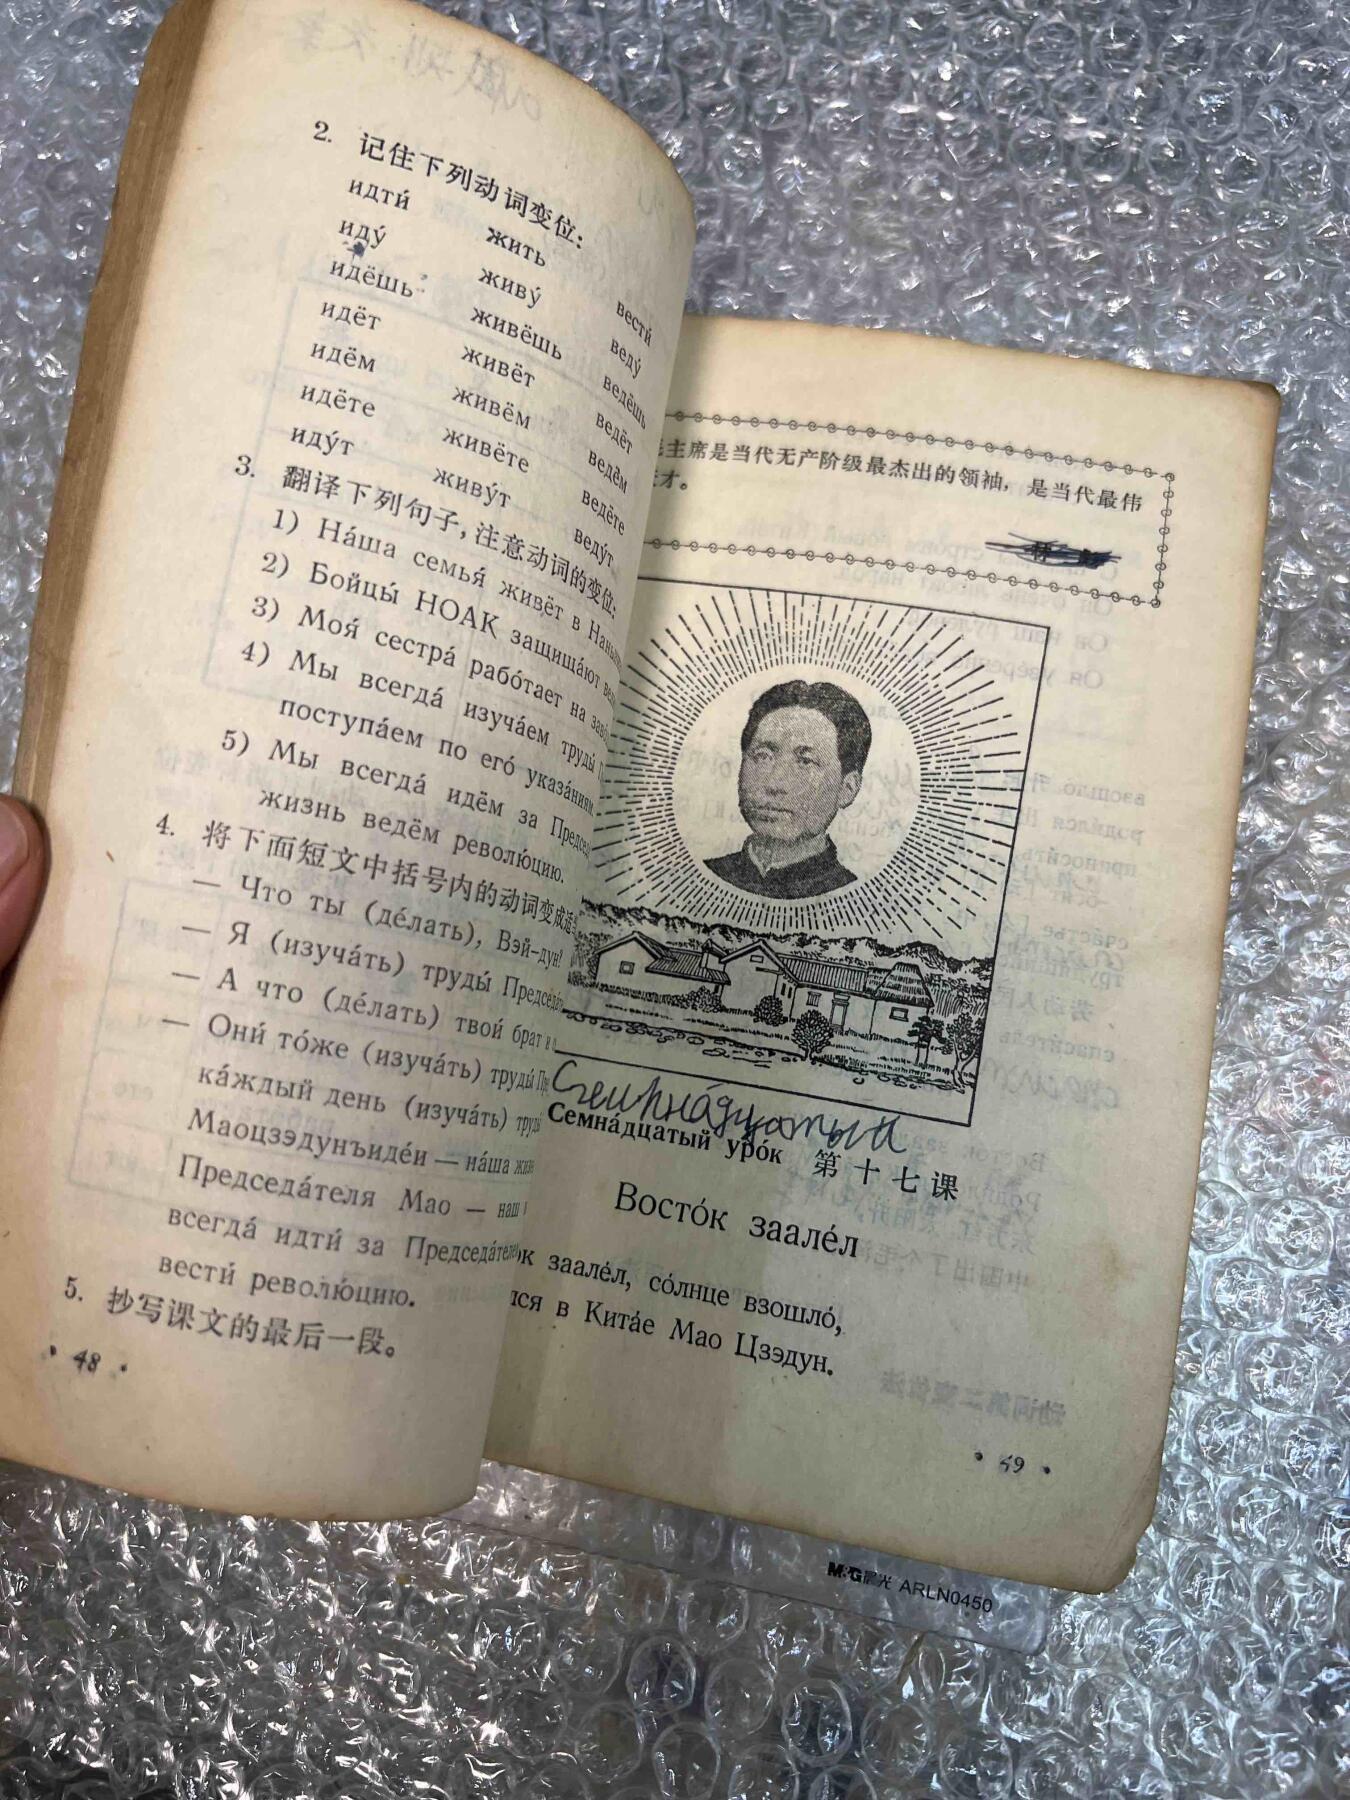 2. 记住下列动词变位:
идти́ жить вести́
иду́ живу́ веду́
идёшь живёшь ведёшь
идёт живёт ведёт
идём живём ведём
идёте живёте ведёте
иду́т живу́т веду́т
3. 翻译下列句子,注意动词的变位:
1) На́ша семья́ живёт в
2) Бойцы́ НОАК защища́ют
3) Моя́ сестра́ рабо́тает на
4) Мы всегда́ изуча́ем труды́
поступа́ем по его́ указа́ниям.
5) Мы всегда́ идём за
жизнь ведём револю́цию.
4. 将下面短文中括号内的动词变成适
— Что ты (де́лать), Вэй-дун?
— Я (изуча́ть) труды́
— А что (де́лать) твой брат и
— Они́ то́же (изуча́ть) труды́
ка́ждый день (изуча́ть)
Маоцзэдунъиде́и — на́ша
Председа́теля Мао — наш
всегда́ идти́ за
вести́ револю́цию.
5. 抄写课文的最后一段。
• 48 •
主席是当代无产阶级最杰出的领袖, 是当代最伟
才。
Семна́дцатый
Семна́дцатый уро́к 第十七课
Восто́к заале́л
заале́л, со́лнце взошло́,
в Кита́е Мао Цзэдун.
• 49 •
M&G晨光 ARLN0450